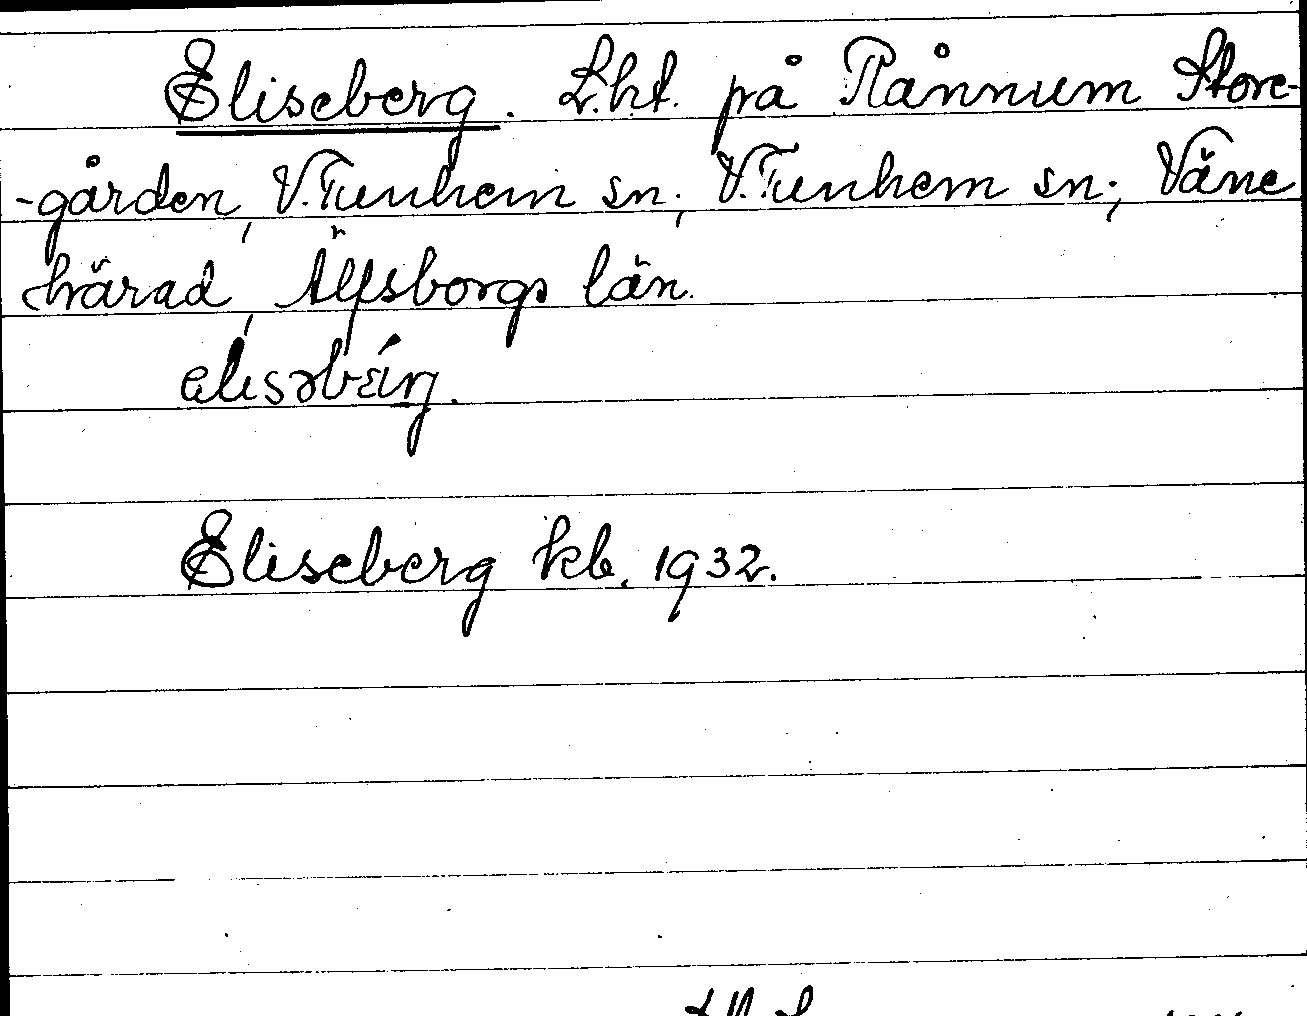 Eliseberg. L.ht. på Rånnum Store-
-gården, V.Tunhem sn., V.Tunhem sn., Väne
härad, Älfsborgs län.
Eliseberg kb. 1932.